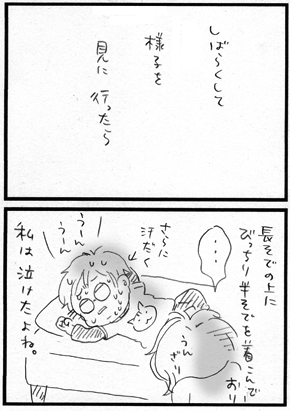 しばらくして
様子を
見に行ったら
長そでの上に
ぴっちり半そでを着こんで
おり
・・・
さらに
汗だく
うーん
うーん
うんざり
私は泣けたよね。